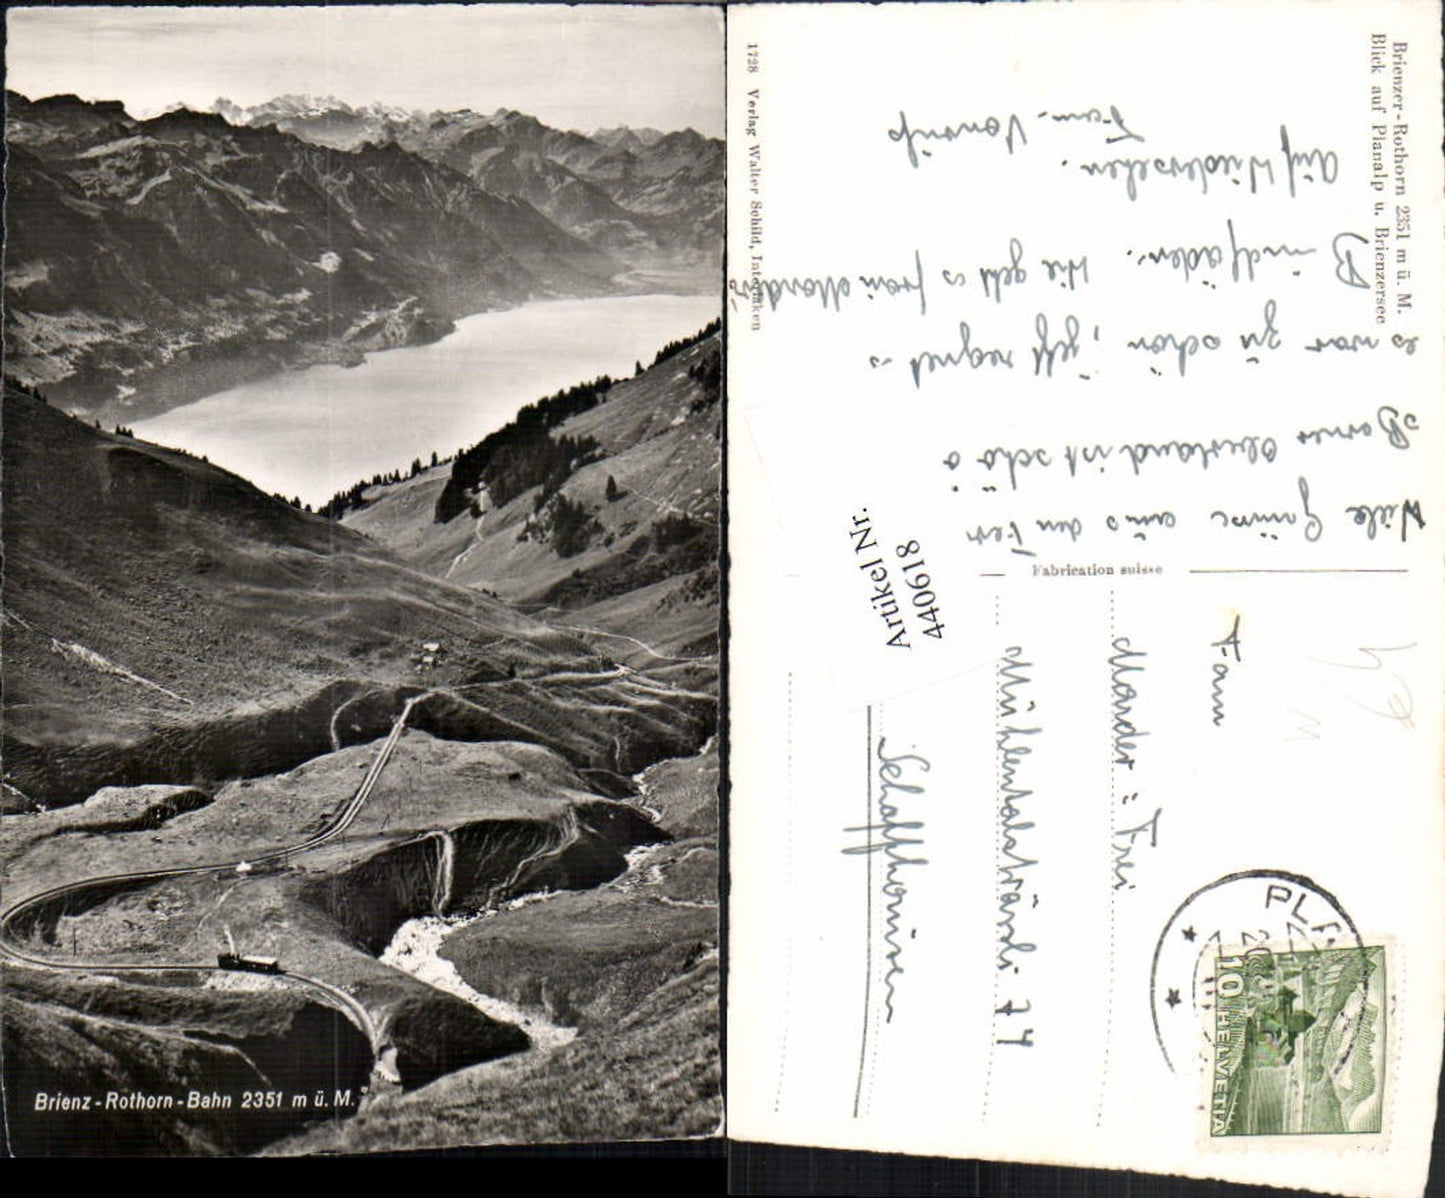 Brienz-Rothorn-Bahn 2351 m ü. M.
Brienzer-Rothorn 2351 m ü. M.
Blick auf Planalp u. Brienzersee
1728 Verlag Walter Schild, Interlaken
Fabrication suisse
Viele Grüsse aus den Fer
Berner Oberland ist schö
es war zu schön, jetzt regnet es
Bindfäden. Wie geht es
Auf Wiedersehen.
Fam.
Artikel Nr.
440618
Fam
Mander-Frei
Mühlentalsträssli 74
Schaffhausen
PLA
10 HELVETIA